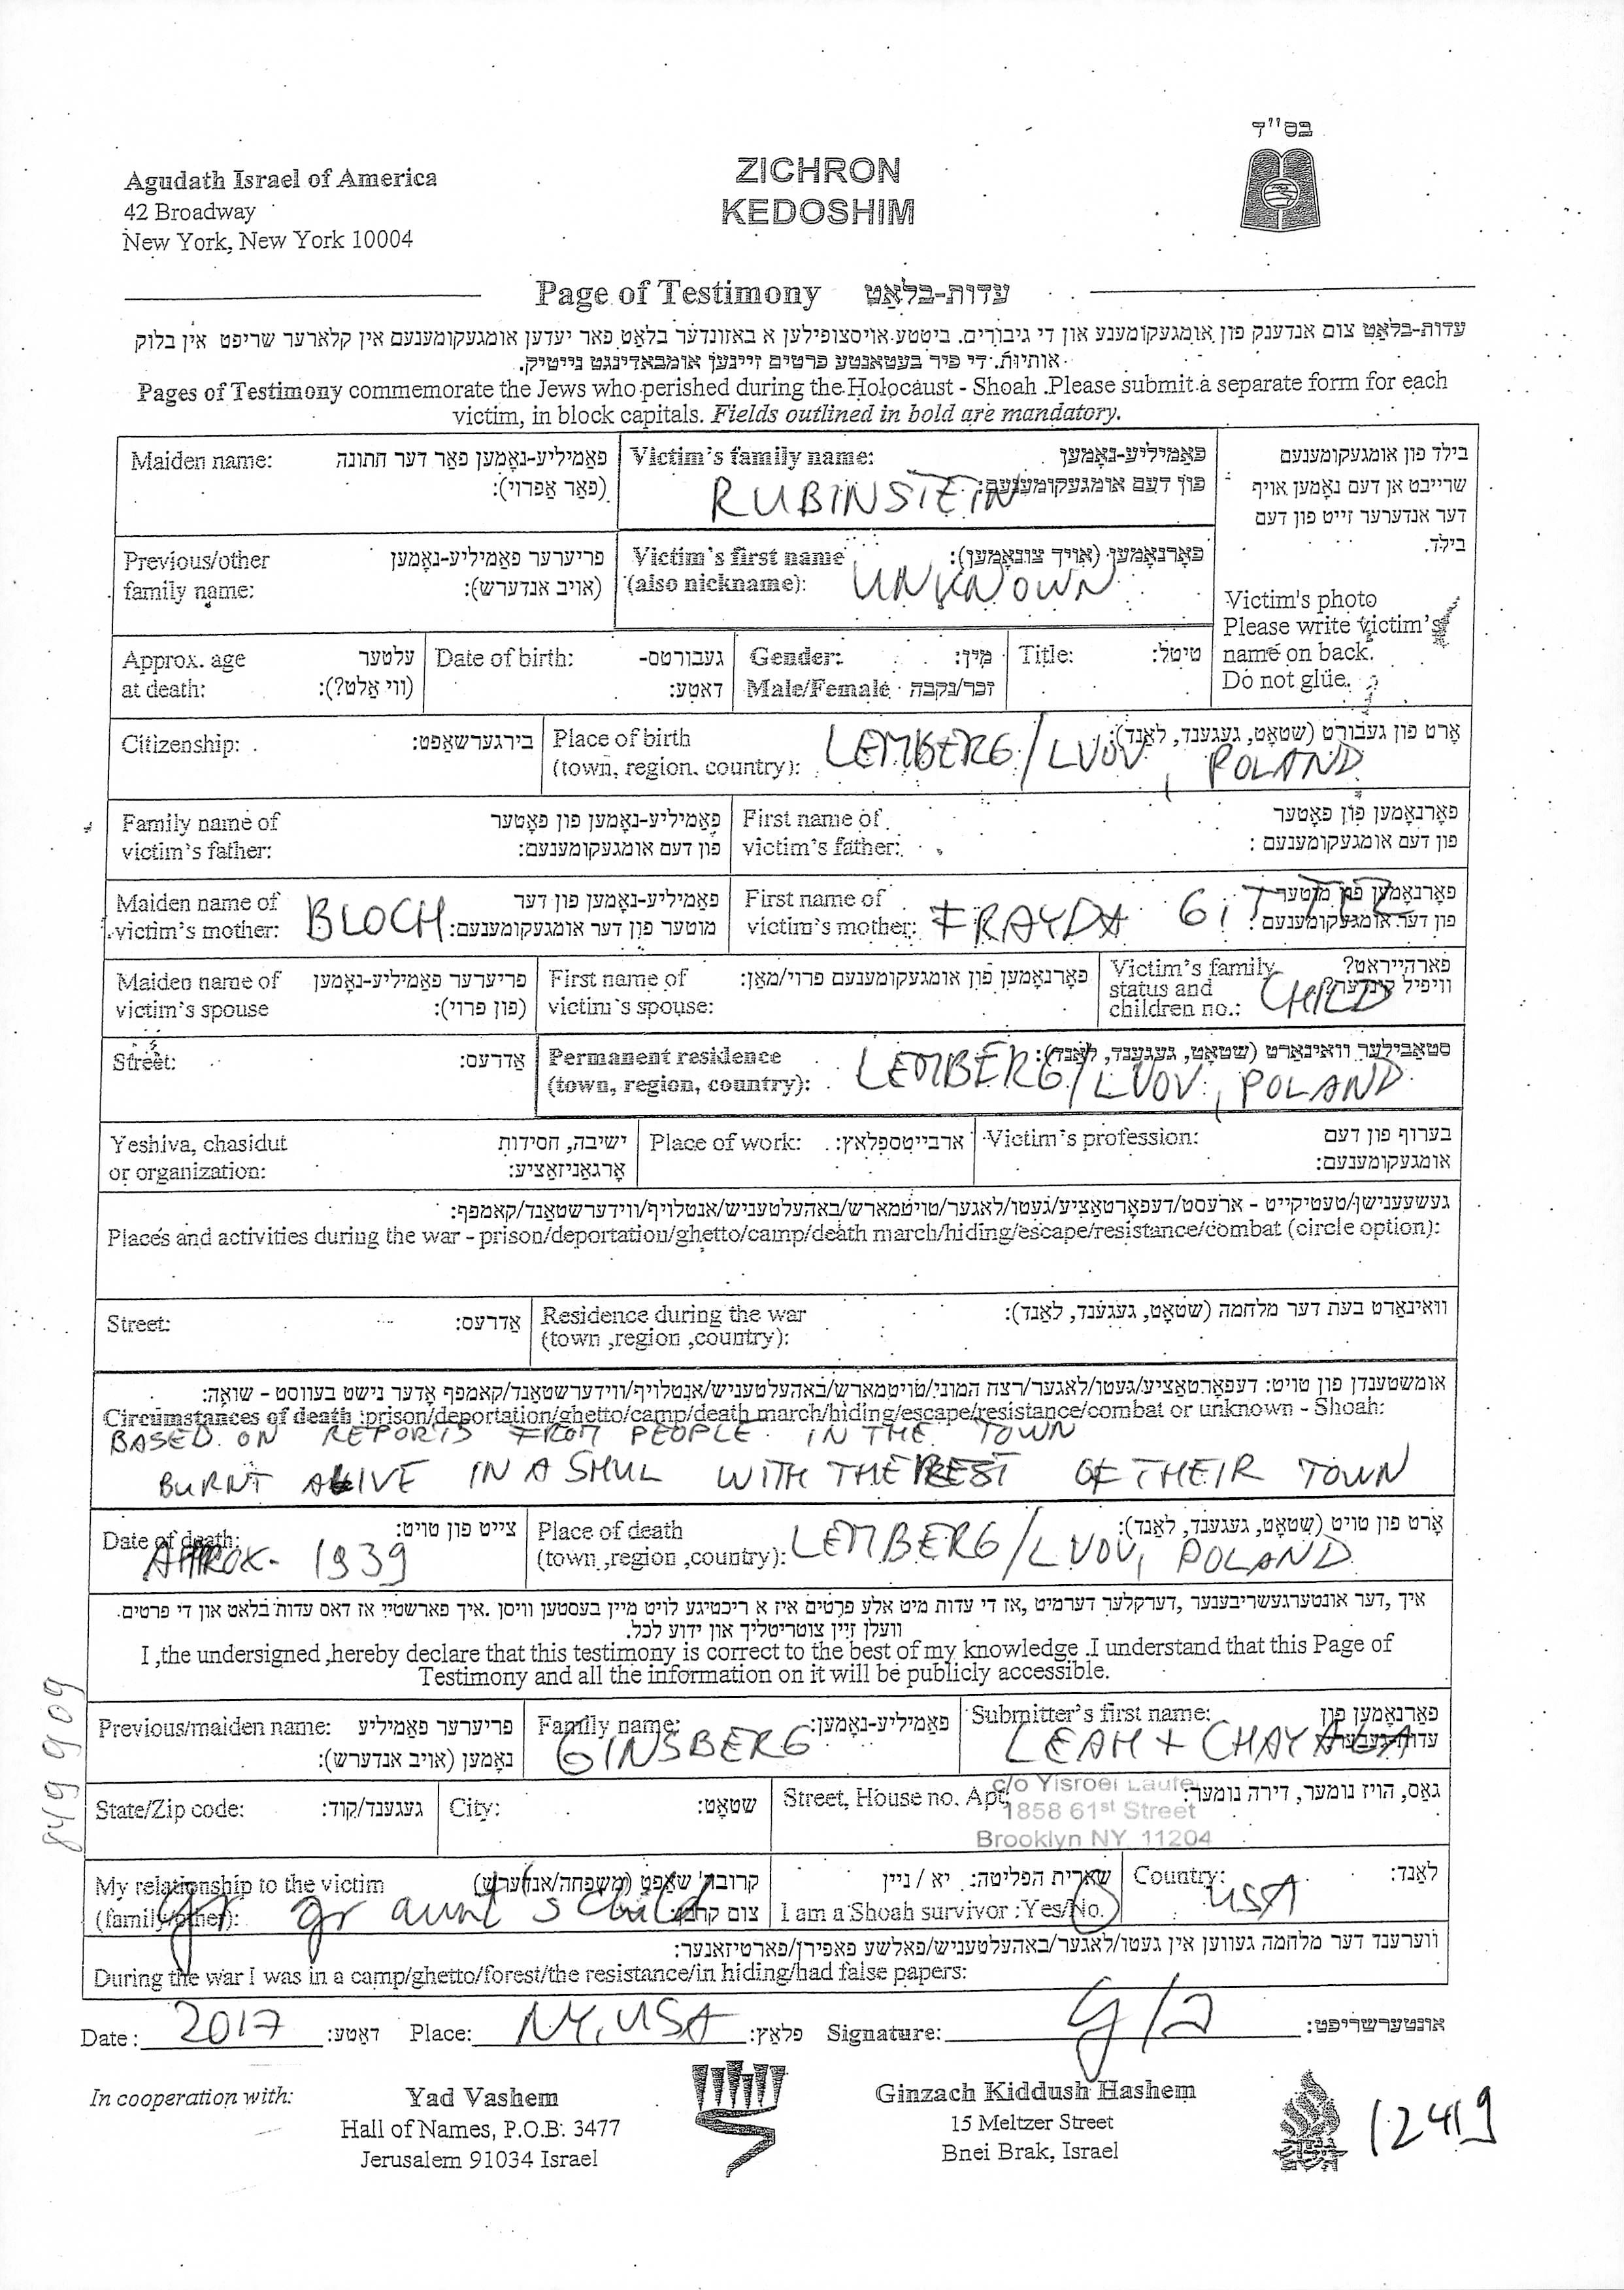 בס"ד
Agudath Israel of America
42 Broadway
New York, New York 10004
ZICHRON
KEDOSHIM
Page of Testimony עדות-בלאַט
עדות-בלאַט צום אנדענק פון אומגעקומענע און די גיבורים. ביטטע אויסצופילען א באזונדער בלאַט פאר יעדען אומגעקומענעם אין קלארער שריפט אין בלוק
אותיות. די פיר בעטאנטע פרטים זיינען אומבאדינגט נייטיק.
Pages of Testimony commemorate the Jews who perished during the Holocaust - Shoah .Please submit a separate form for each
victim, in block capitals. Fields outlined in bold are mandatory.
Maiden name: פאַמיליע-נאָמען פאַר דער חתונה
(פאַר אַפרוי):
Victim's family name: פאַמיליע-נאָמען
פון דעם אומגעקומענעם:
RUBINSTEIN
בילד פון אומגעקומענעם
שרייבט אן דעם נאָמען אויף
דער אנדערער זייט פון דעם
בילד.
Victim's photo
Please write victim's
name on back.
Do not glue.
Previous/other פריערער פאַמיליע-נאָמען
family name: (אויב אנדערש):
Victim's first name פאָרנאָמען (אויך צונאָמען):
(also nickname): UNKNOWN
Approx. age עלטער
at death: (ווי אַלט?):
Date of birth: געבורטס-
דאַטע:
Gender: מין:
Male/Female זכר/נקבה
Title: טיטל:
Citizenship: בירגערשאַפט:
Place of birth אָרט פון געבורט (שטאָט, געגענד, לאַנד):
(town, region, country): LEMBERG/LVOV, POLAND
Family name of פאַמיליע-נאָמען פון פאָטער
victim's father: פון דעם אומגעקומענעם:
First name of פאָרנאָמען פון פאָטער
victim's father: פון דעם אומגעקומענעם :
Maiden name of פאַמיליע-נאָמען פון דער
victim's mother: BLOCH מוטער פון דער אומגעקומענעם:
First name of פאָרנאָמען פון מוטער
victim's mother: FRAYDA GITTEL פון דער אומגעקומענעם:
Maiden name of פריערער פאַמיליע-נאָמען
victim's spouse (פון פרוי):
First name of פאָרנאָמען פון אומגעקומענעם פרוי/מאַן:
victim's spouse:
Victim's family פארהייראט?
status and וויפיל קינדער?
children no.: CHILD
Street: אַדרעס:
Permanent residence סטאַבילער וואוינאָרט (שטאָט, געגענד, לאַנד):
(town, region, country): LEMBERG/LVOV, POLAND
Yeshiva, chasidut ישיבה, חסידות
or organization: אָרגאַניזאַציע:
Place of work: ארבייטספלאַץ:
Victim's profession: בערוף פון דעם
אומגעקומענעם:
געשעענישן/טעטיקייט - ארעסט/דעפאָרטאַציע/געטו/לאגער/טויטמארש/באַהעלטעניש/אנטלויף/ווידערשטאַנד/קאמפף:
Places and activities during the war - prison/deportation/ghetto/camp/death march/hiding/escape/resistance/combat (circle option):
Street: אַדרעס:
Residence during the war וואוינאָרט בעת דער מלחמה (שטאָט, געגענד, לאַנד):
(town ,region ,country):
אומשטענדן פון טויט: דעפאָרטאַציע/געטו/לאגער/רצח המוני/טויטמארש/באַהעלטעניש/אנטלויף/ווידערשטאַנד/קאמפף אָדער נישט בעוווסט - שואה:
Circumstances of death :prison/deportation/ghetto/camp/death march/hiding/escape/resistance/combat or unknown - Shoah:
BASED ON REPORTS FROM PEOPLE IN THE TOWN
BURNT ALIVE IN A SHUL WITH THE REST OF THEIR TOWN
Date of death: צייט פון טויט:
APPROX- 1939
Place of death אָרט פון טויט (שטאָט, געגענד, לאַנד):
(town ,region ,country): LEMBERG/LVOV, POLAND
איך ,דער אונטערגעשריבענער ,דערקלער דערמיט ,אז די עדות מיט אלע פרטים איז א ריכטיגע לויט מיין בעסטען וויסן .איך פארשטיי אז דאס עדות בלאט און די פרטים
וועלן זיין צוטריטליך און ידוע לכל.
I ,the undersigned ,hereby declare that this testimony is correct to the best of my knowledge .I understand that this Page of
Testimony and all the information on it will be publicly accessible.
Previous/maiden name: פריערער פאַמיליע
נאָמען (אויב אנדערש):
Family name: פאַמיליע-נאָמען:
GINSBERG
Submitter's first name: פאָרנאָמען פון
LEAH + CHAYA
State/Zip code: געגענד/קוד:
City: שטאָט:
Street, House no. Apt: גאס, הויז נומער, דירה נומער:
c/o Yisroel Laufer
1858 61st Street
Brooklyn NY 11204
My relationship to the victim קרובה' שאַפט (משפחה/אנדערש)
(family/other): gr gr aunt's child
שארית הפליטה: יא / ניין
I am a Shoah survivor :Yes/No.
Country: לאנד:
USA
ווערענד דער מלחמה געווען אין געטו/לאגער/באַהעלטעניש/פאַלשע פאפירן/פארטיזאנער:
During the war I was in a camp/ghetto/forest/the resistance/in hiding/had false papers:
Date : 2017 דאַטע: Place: NY, USA פלאַץ: Signature: אונטערשריפט:
In cooperation with:
Yad Vashem
Hall of Names, P.O.B. 3477
Jerusalem 91034 Israel
Ginzach Kiddush Hashem
15 Meltzer Street
Bnei Brak, Israel
12419
8499909